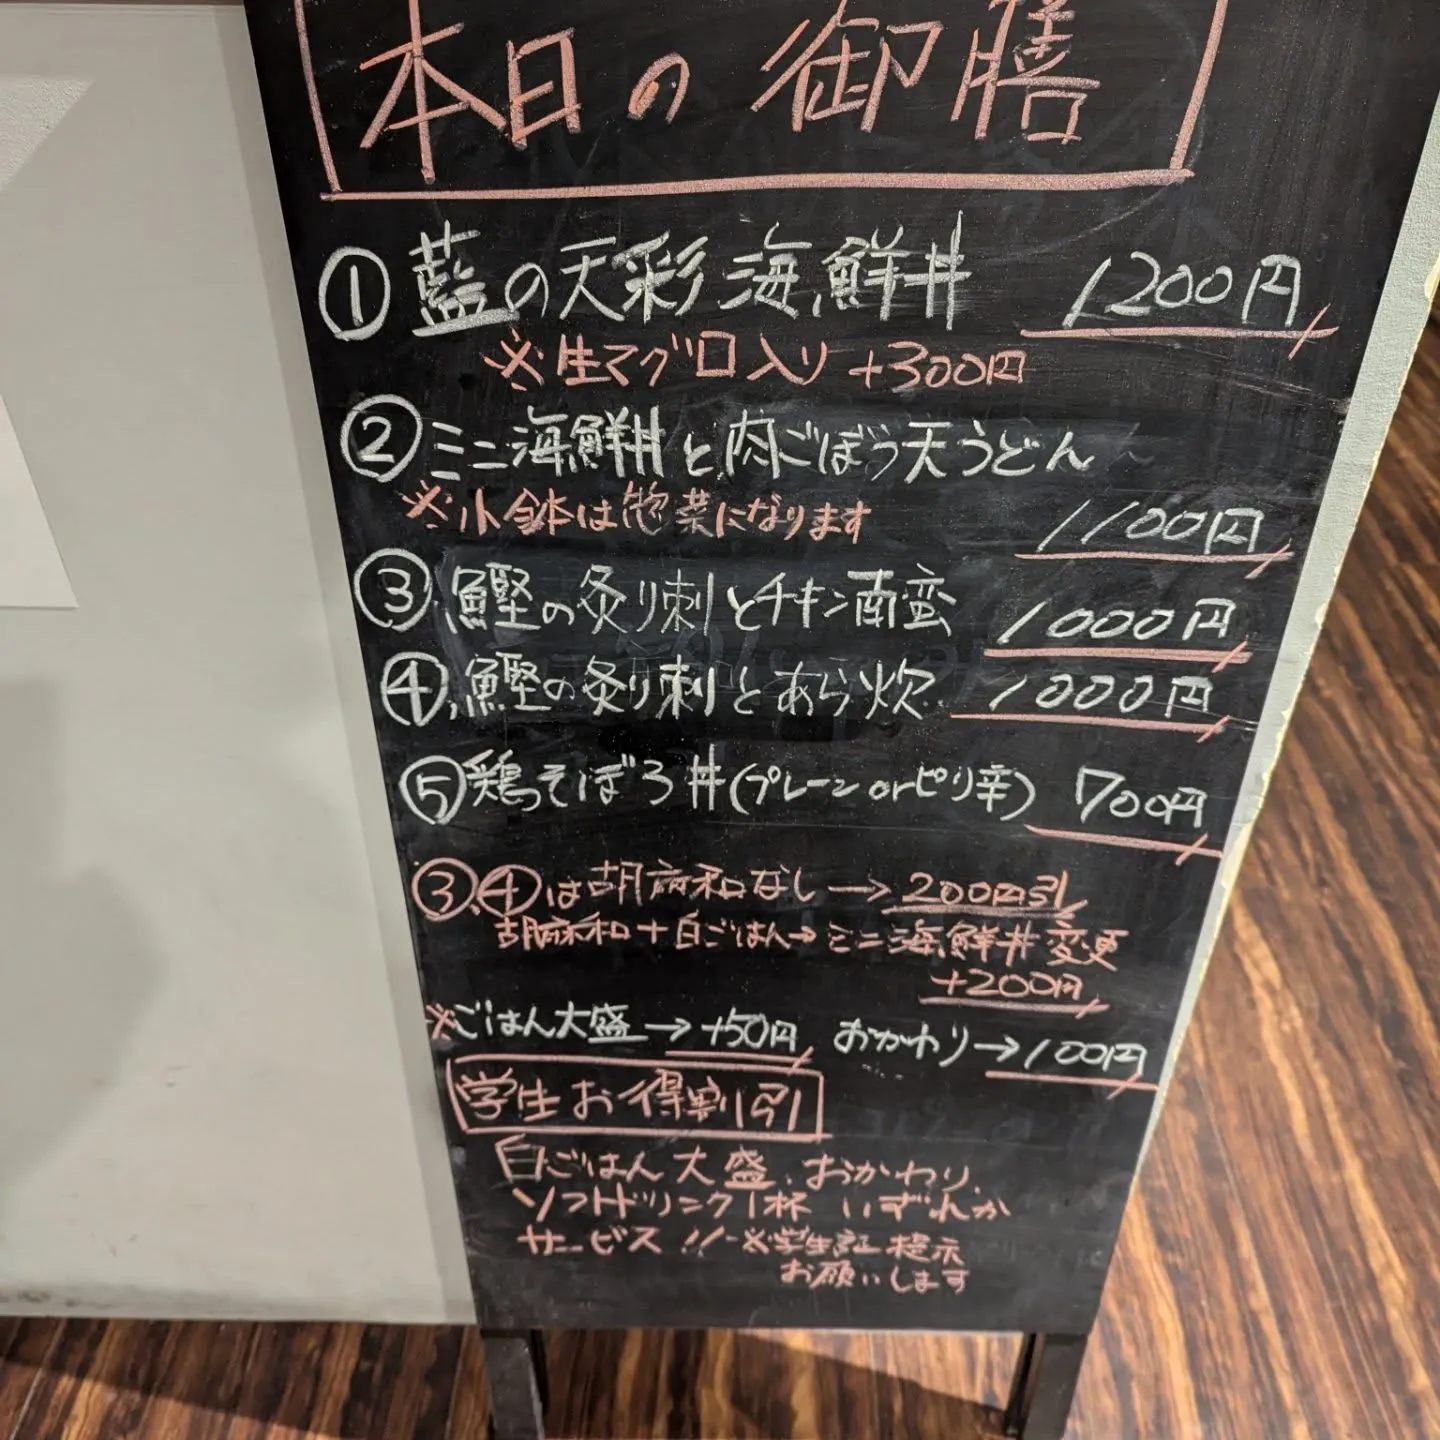 本日の御膳
①藍の天彩海鮮丼 1200円
※生マグロ入り +300円
②ミニ海鮮丼と肉ごぼう天うどん
※小鉢は惣菜になります
1100円
③鰹の炙り刺とチキン南蛮 1000円
④鰹の炙り刺とあら炊 1000円
⑤鶏そぼろ丼(プレーンorピリ辛) 700円
③④は胡麻和なし→200円引
胡麻和+白ごはん→ミニ海鮮丼変更
+200円
※ごはん大盛→+50円 おかわり→100円
学生お得割引
白ごはん大盛、おかわり、
ソフトドリンク1杯 いずれか
サービス!! ※学生証提示
お願いします